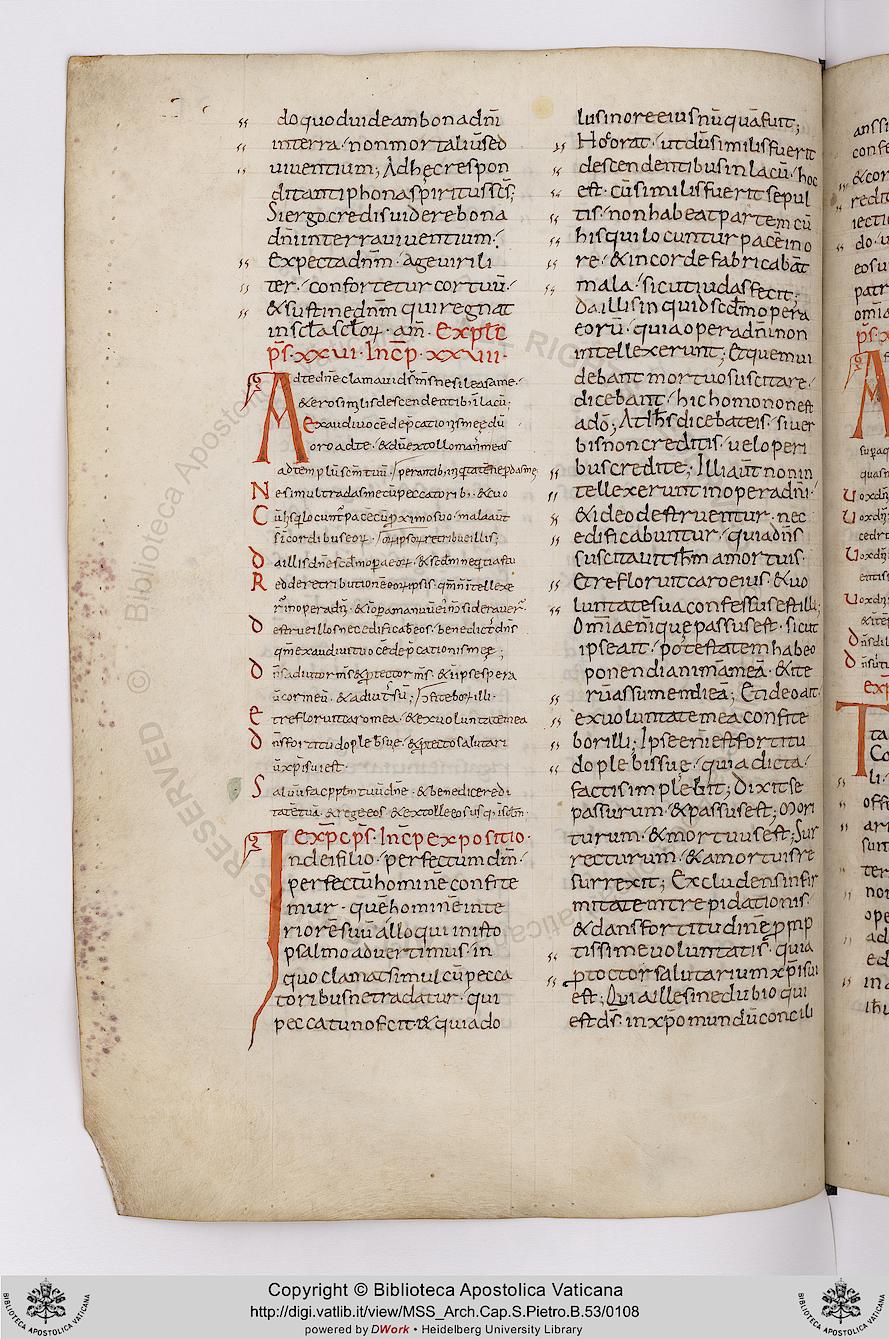 do quod uideam bona dñi
in terra · non mortaliũ sed
uiuentium; Ad hec respon
dit antiphona sp̃iritus sc̃s;
Si ergo credis uidere bona
dñi in terra uiuentium ·
Expecta dñm · age uirili
ter · confortetur cor tuũ ·
& sustine dñm qui regnat
in sc̃la sc̃loꝝ · am̃ · Explc̃
p̃s · xxvi · Inc̃p · xxvii ·
Ad te dñe clamaui d̃s m̃s ne sileas a me ·
& ero similis descendentib; in lacũ;
Exaudi uocẽ dep̃cationis meę dũ
oro ad te · & dũ extollo manus meas
ad templũ sc̃m tuũ ·
Ne simul tradas me cũ peccatorib; · & cũ
Cũ his q̃ locunt̃ pacẽ cũ p̃ximo suo · mala aũt
Da illis
Redde retributionẽ eoꝝ ipsis · qm̃ ñ intellexe
destrues illos nec edificab̃ eos · benedict̃ dñs
qm̃ exaudiuit uocẽ dep̃cationis meę;
Dñs adiutor m̃s & p̃tector m̃s · & in ipso spera
uit cor meũ · & adiut̃ sũ;
Et refloruit caro mea · & ex uoluntate mea
Dñs fortitudo plebis suę · & p̃tector salutariũ
xp̃i sui est ·
Saluũ fac pp̃lm tuũ dñe · & benedic heredi
tatẽ tuã · & rege eos · & extolle eos usq; in sc̃lm ·
Exp̃c p̃s · Inc̃p expositio ·
In dei filio · perfectum dm̃ ·
perfectũ hominẽ confite
mur · quẽ hominẽ inte
riorẽ suũ alloqui in isto
psalmo aduertimus · in
quo clamat simul cũ pecca
toribus ne tradatur · qui
peccatũ nõ fecit & quia do
lus in ore eius nũquã fuit;
Hoc orat · ut dũ similis fuerit
descendentibus in lacũ · hoc
est · cũ similis fuerit sepul
tis · non habeat partem cũ
his qui locuntur pacẽ in o
re · & in corde fabricabãt
mala · sicut iudas fecit;
Da illis inquid sc̃dm opera
eorũ · quia opera dñi non
intellexerunt; Et quem ui
debant mortuos suscitare ·
dicebant · hic homo non est
a dõ; At ihs dicebat eis · si uer
bis non creditis · uel operi
bus credite; Illi aũt non in
tellexerunt in opera dñi ·
& ideo destruentur · nec
edificabuntur · quia dñs
suscitauit ihm a mortuis ·
Et refloruit caro eius · & uo
luntate sua confessus est illi;
Omĩa eñi que passus est · sicut
ipse ait · potestatem habeo
ponendi animã meã · & ite
rũ assumendi eã; Et ideo ait ·
ex uoluntate mea confite
bor illi; Ipse eñi est fortitu
do plebis suę · quia dicta
factis implebit; Dixit se
passurum · & passus est; Mori
turum · & mortuus est; Sur
recturum · & a mortuis re
surrexit; Excludens infir
mitate in trepidationis ·
& dans fortitudinẽ p̃mp
tissime uoluntatis · quia
p̃toctor salutarium xp̃i sui
est; Qui aille sine dubio qui
est d̃s · in xp̃o mundũ concili
Copyright © Biblioteca Apostolica Vaticana
http://digi.vatlib.it/view/MSS_Arch.Cap.S.Pietro.B.53/0108
powered by DWork • Heidelberg University Library